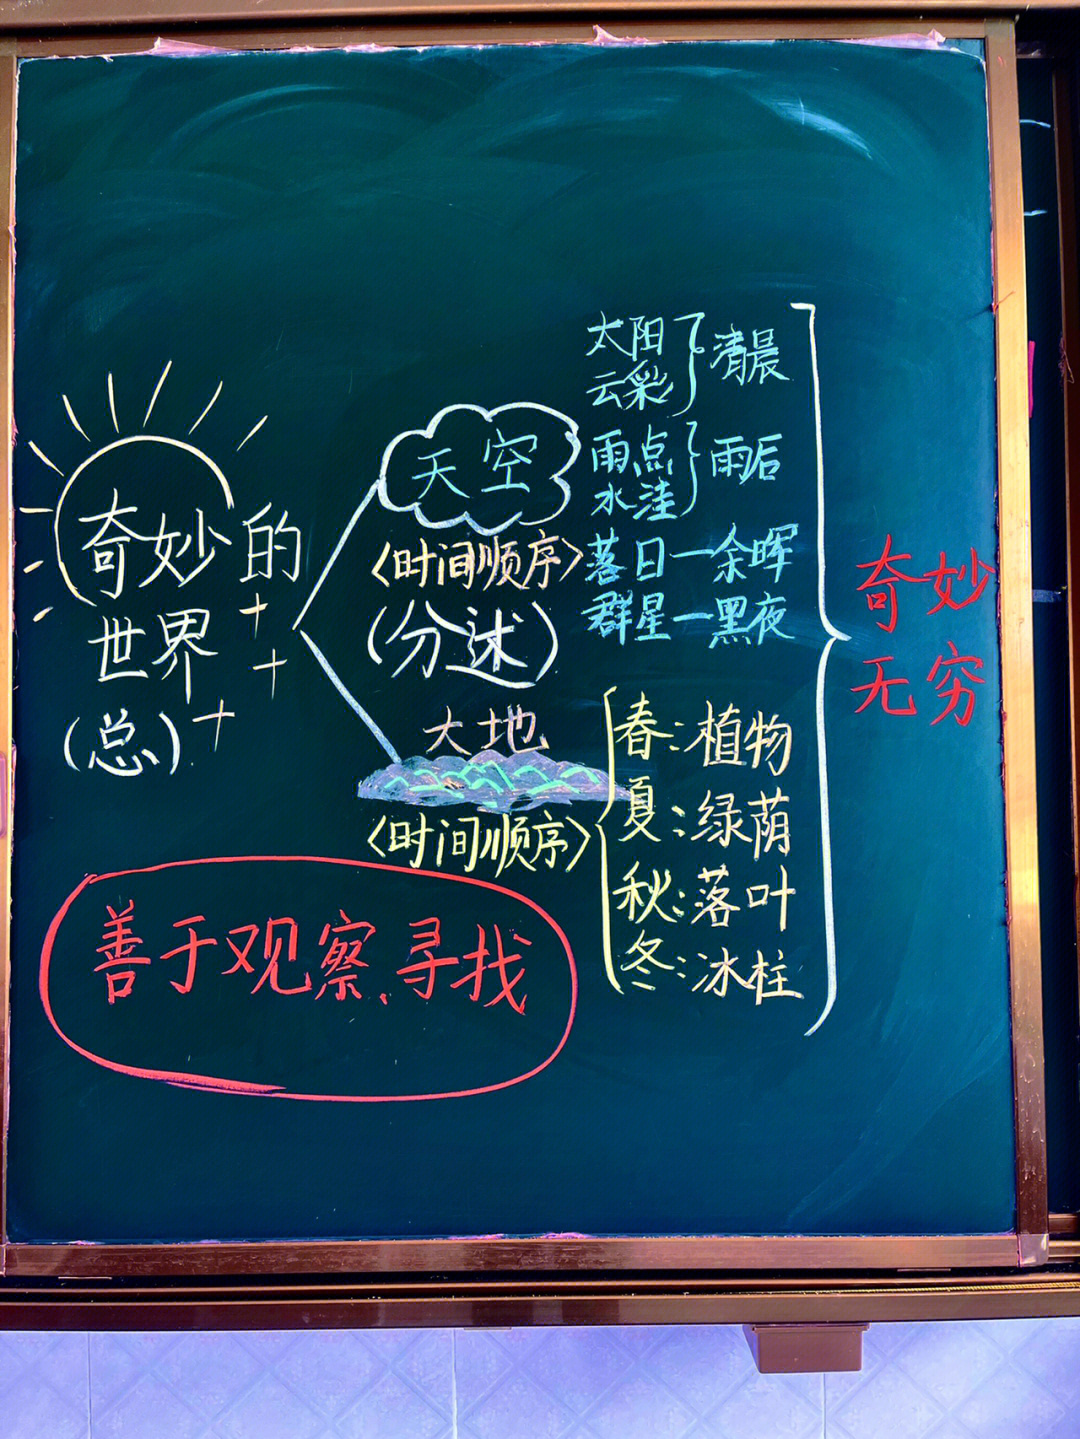 奇妙的
世界
(总)
天空
<时间顺序>
(分述)
太阳
云彩
清晨
雨点
水洼
雨后
落日一余晖
群星一黑夜
大地
<时间顺序>
春:植物
夏:绿荫
秋:落叶
冬:冰柱
奇妙
无穷
善于观察、寻找